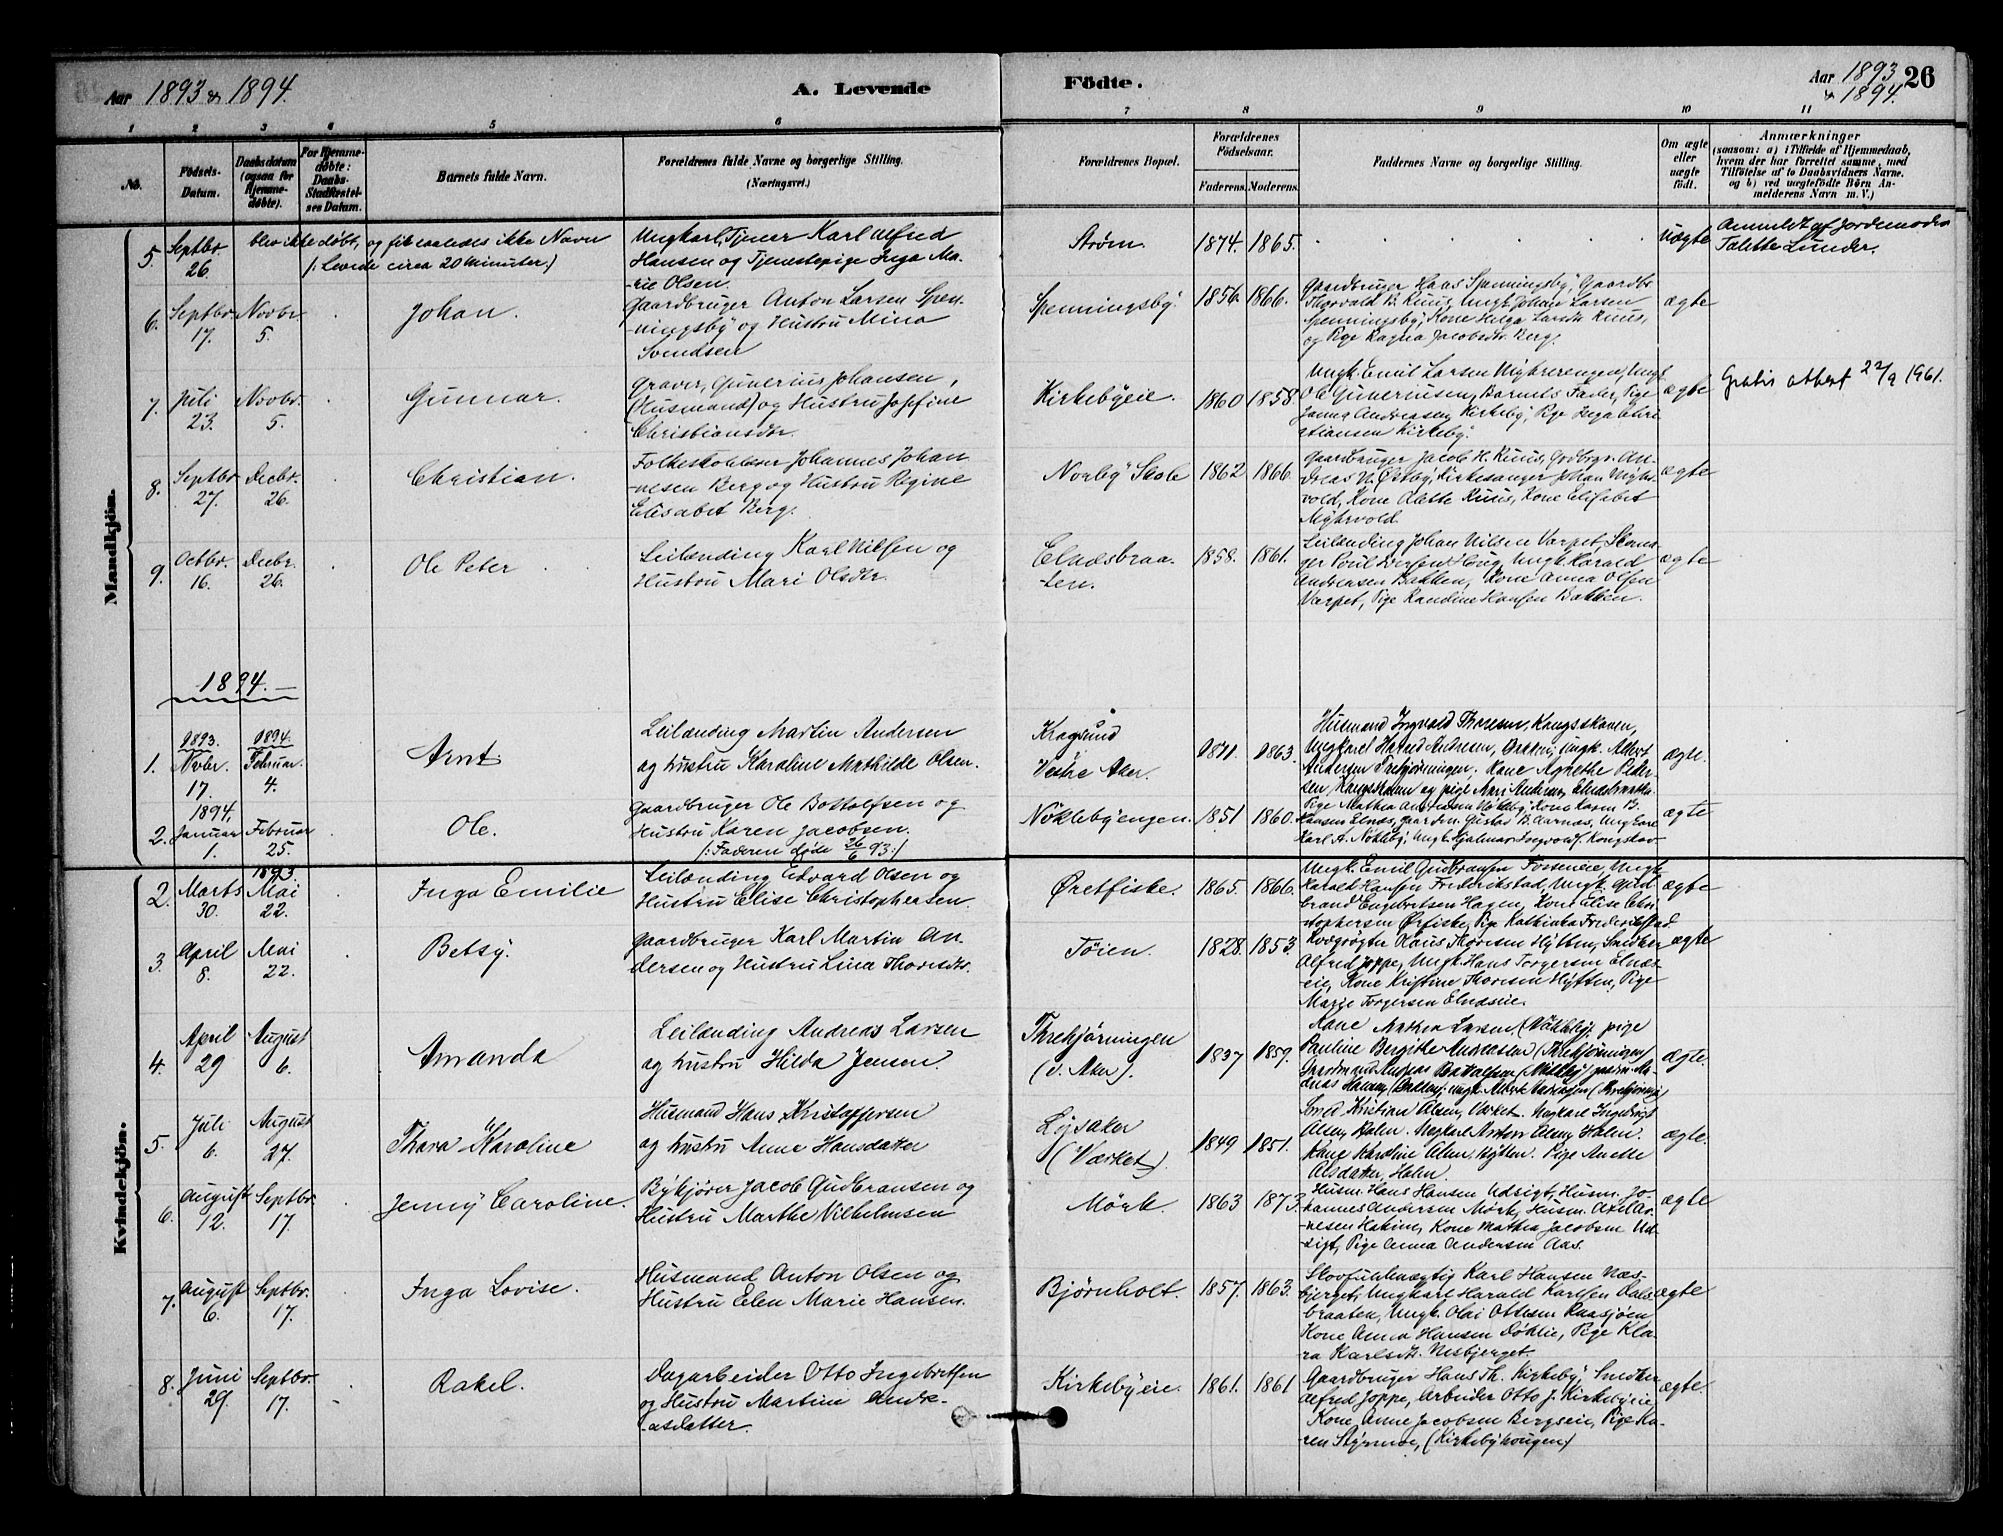 Aar 1893 & 1894.
A. Levende
Födte.
Aar 1893 & 1894.
26
1 2 3 4 5 6 7 8 9 10 11
No.
Födsels-Datum.
Daabsdatum (ogsaa for Hjemmedøbte).
For Hjemmedøbte: Daabs-Stadfæstelses Datum.
Barnets fulde Navn.
Forældrenes fulde Navne og borgerlige Stilling. (Næringsvei.)
Forældrenes Bopæl.
Forældrenes Födselsaar.
Faderens. Moderens.
Faddernes Navne og borgerlige Stilling.
Om ægte eller uægte födt.
Anmærkninger
(saasom: a) i Tilfælde af Hjemmedaab, hvem der har forrettet samme, med Tilföielse af to Daabsvidners Navne. og b) ved uægtefödte Börn Anmelderens Navn m. V.)
Mandkjön.
5. Septbr. 26.
blev ikke døbt, og fik saaledes ikke Navn
(: Levede circa 20 minuter.)
Ungkarl, Tjener Karl Alfred
Hansen og Tjenestepige Inga Ma-
-rie Olsen.
Strøm. 1874. 1865.
uægte
Anmeldt af Jordemoder
Talette Lunder.
6. Septbr. 17. Novbr. 5.
Johan.
Gaardbruger Anton Larsen Spen-
-ningsby og Hustru Mina
Svendsen
Spenningsby 1856. 1866.
Gaardbruger Hans Spenningsby, Gaardbr.
Thorvald B. Ruus, Ungk. Johan Larsen
Spenningsby, Kone Helga Larsdr. Ruus,
og Pige Ragna Jacobsdr. Berg.
ægte
7. Juli 23. Novbr. 5.
Gunnar.
Graver, Gunerius Johansen,
(Husmand) og Hustru Josefine
Christiansdr.
Kirkebyeie. 1860 1858
Ungk. Emil Larsen
O. Gunerius­en, Barnets Fader, Pige
Janna Andreasen, Kirkeby, Pige Inga Chri-
stiansen Kirkeby.
ægte
Gratis attest 22/9 1961.
8. Septbr. 27. Decbr. 26.
Christian.
Folkeskolelærer Johannes Johan
-nesen Berg og Hustru Regine
Elisabet Berg.
Norby Skole 1862 1866.
Gaardbruger Jacob H. Ruus, Grdbrgr. An-
dreas N. Østby, Kirkesanger Johan Myhr-
vold, Kone Olette Ruus, Kone Elisabet
Myhrvold.
ægte
9. Octbr. 16. Decbr. 26.
Ole Peter
Leilænding Karl Nilsen og
Hustru Mari Olsdr.
Elnesbraa-
ten. 1858. 1861.
Leilænding Johan Nilsen Varpet,
Ungk. Harald
Andersen Bakken, Kone Anna Olsen
Varpet, Pige Randine Hansen Bakken.
ægte
1894.
1. 1893. Novbr. 17. 1894. Februar 4.
Arnt
Leilænding Martin Andersen
og hustru Karoline Mathilde Olsen.
Kragsund
Vestre Aker. 1871. 1863.
Husmand Ingvald Thoresen, Kongsskoven,
Ungkarl Andersen, ungk. Albert
Andersen Trehjørningen. Kone Agnethe Peder-
sen, Kongsskoven og pige Mari Andersen
ægte.
2. 1894. Januar 1. Februar 25.
Ole.
Gaardbruger Ole Bottolfsen og
Hustru Karen Jacobsen.
(: Faderen døde 26/6 93:)
Nöklebyengen. 1851 1860.
Pige Mathea Andersen Nökleby, Kone Karen B.
Hansen Elnæs, Gaardm. Gustav B. Aarnæs, Ungkarl
Karl A. Nökleby, Ungk. Hjalmar Ingvolds. Kongskov
ægte
Kvindekjön.
2. Marts 30. 1893 Mai 22.
Inga Emilie
Leilænding Edvard Olsen og
Hustru Elise Christophersen.
Øretfiske. 1865. 1866.
Ungk. Emil Gudbransen Ungk.
Harald Hansen Fredrikstad, Ungk. Guld-
brand Engebretsen Hagen, Kone Elise Chri-
stophersen Ørfiske, Pige Kathinka Fredrikstad.
ægte
3. April 8. Mai 22.
Betsy.
Gaardbruger Karl Martin An-
dersen og Hustru Lina Thorsdr.
Töien. 1828. 1853.
Kvægrøgter Olaus Thoresen Hytten, Snedker
Alfred Joppe, Ungk. Hans Torgersen Elnæs-
eie, Kone Kristine Thoresen Hytten, Pige
Marie Torgersen Elnæseie.
ægte
4. April 29 August 6.
Amanda
Leilænding Andreas Larsen
og hustru Hilda Jensen.
Threhjørningen
(v. Aker). 1837 1859.
Kone Mathea Larsen (Nökleby), pige
Pauline Bergitte Andreassen (Threhjørningen)
ægte.
5. Juli 6. August 27.
Thora Karoline
Husmand Hans Kristoffersen
og hustru Anne Hansdatter
Lysaker
(Værket). 1849 1851.
Smed Kristian Olsen, Værket. Ungkarl Ingebrigt
Olsen, Holen. Ungkarl Anton Olsen, Holen.
Kone Karoline Olsen, Hytten. Pige Anette
Olsdatter, Holen.
ægte.
6. August 12. Septbr. 17.
Jenny Caroline.
Bykjører Jacob Gudbransen og
Hustru Marthe Vilhelmsen
Mörk. 1863 1873.
Husm. Hans Hansen Udsigt, Husm. Jo-
hannes Andersen Mørk, Husm. Axel Ar-
nesen Hakim, Kone Mathea Jacobsen Ud-
-sigt, Pige Anna Andersen Aas.
ægte
7. August 6. Septbr. 17.
Inga Lovise.
Husmand Anton Olsen og
Hustru Elen Marie Hansen.
Bjørnholt. 1857. 1863.
Skovfuldmægtig Karl Hansen Næs-
bjerget, Ungkarl Harald Karlsen Dals-
braaten, Ungk. Olai Ottesen Raasjøen,
Kone Anna Hansen Døhlie, Pige Kla-
ra Karlsdr. Nesbjerget.
ægte
8. Juni 29. Septbr. 17.
Rakel.
Dagarbeider Otto Ingebretsen
og Hustru Martine Andre-
-asdatter.
Kirkebyeie. 1861. 1861
Gaardbruger Hans Th. Kirkeby, Snedker
Alfred Joppe, Arbeider Otto J. Kirkebyeie,
Kone Anne Jacobsen Bergseie, Pige Ka-
ren Stymoe, (Kirkebyhougen)
ægte